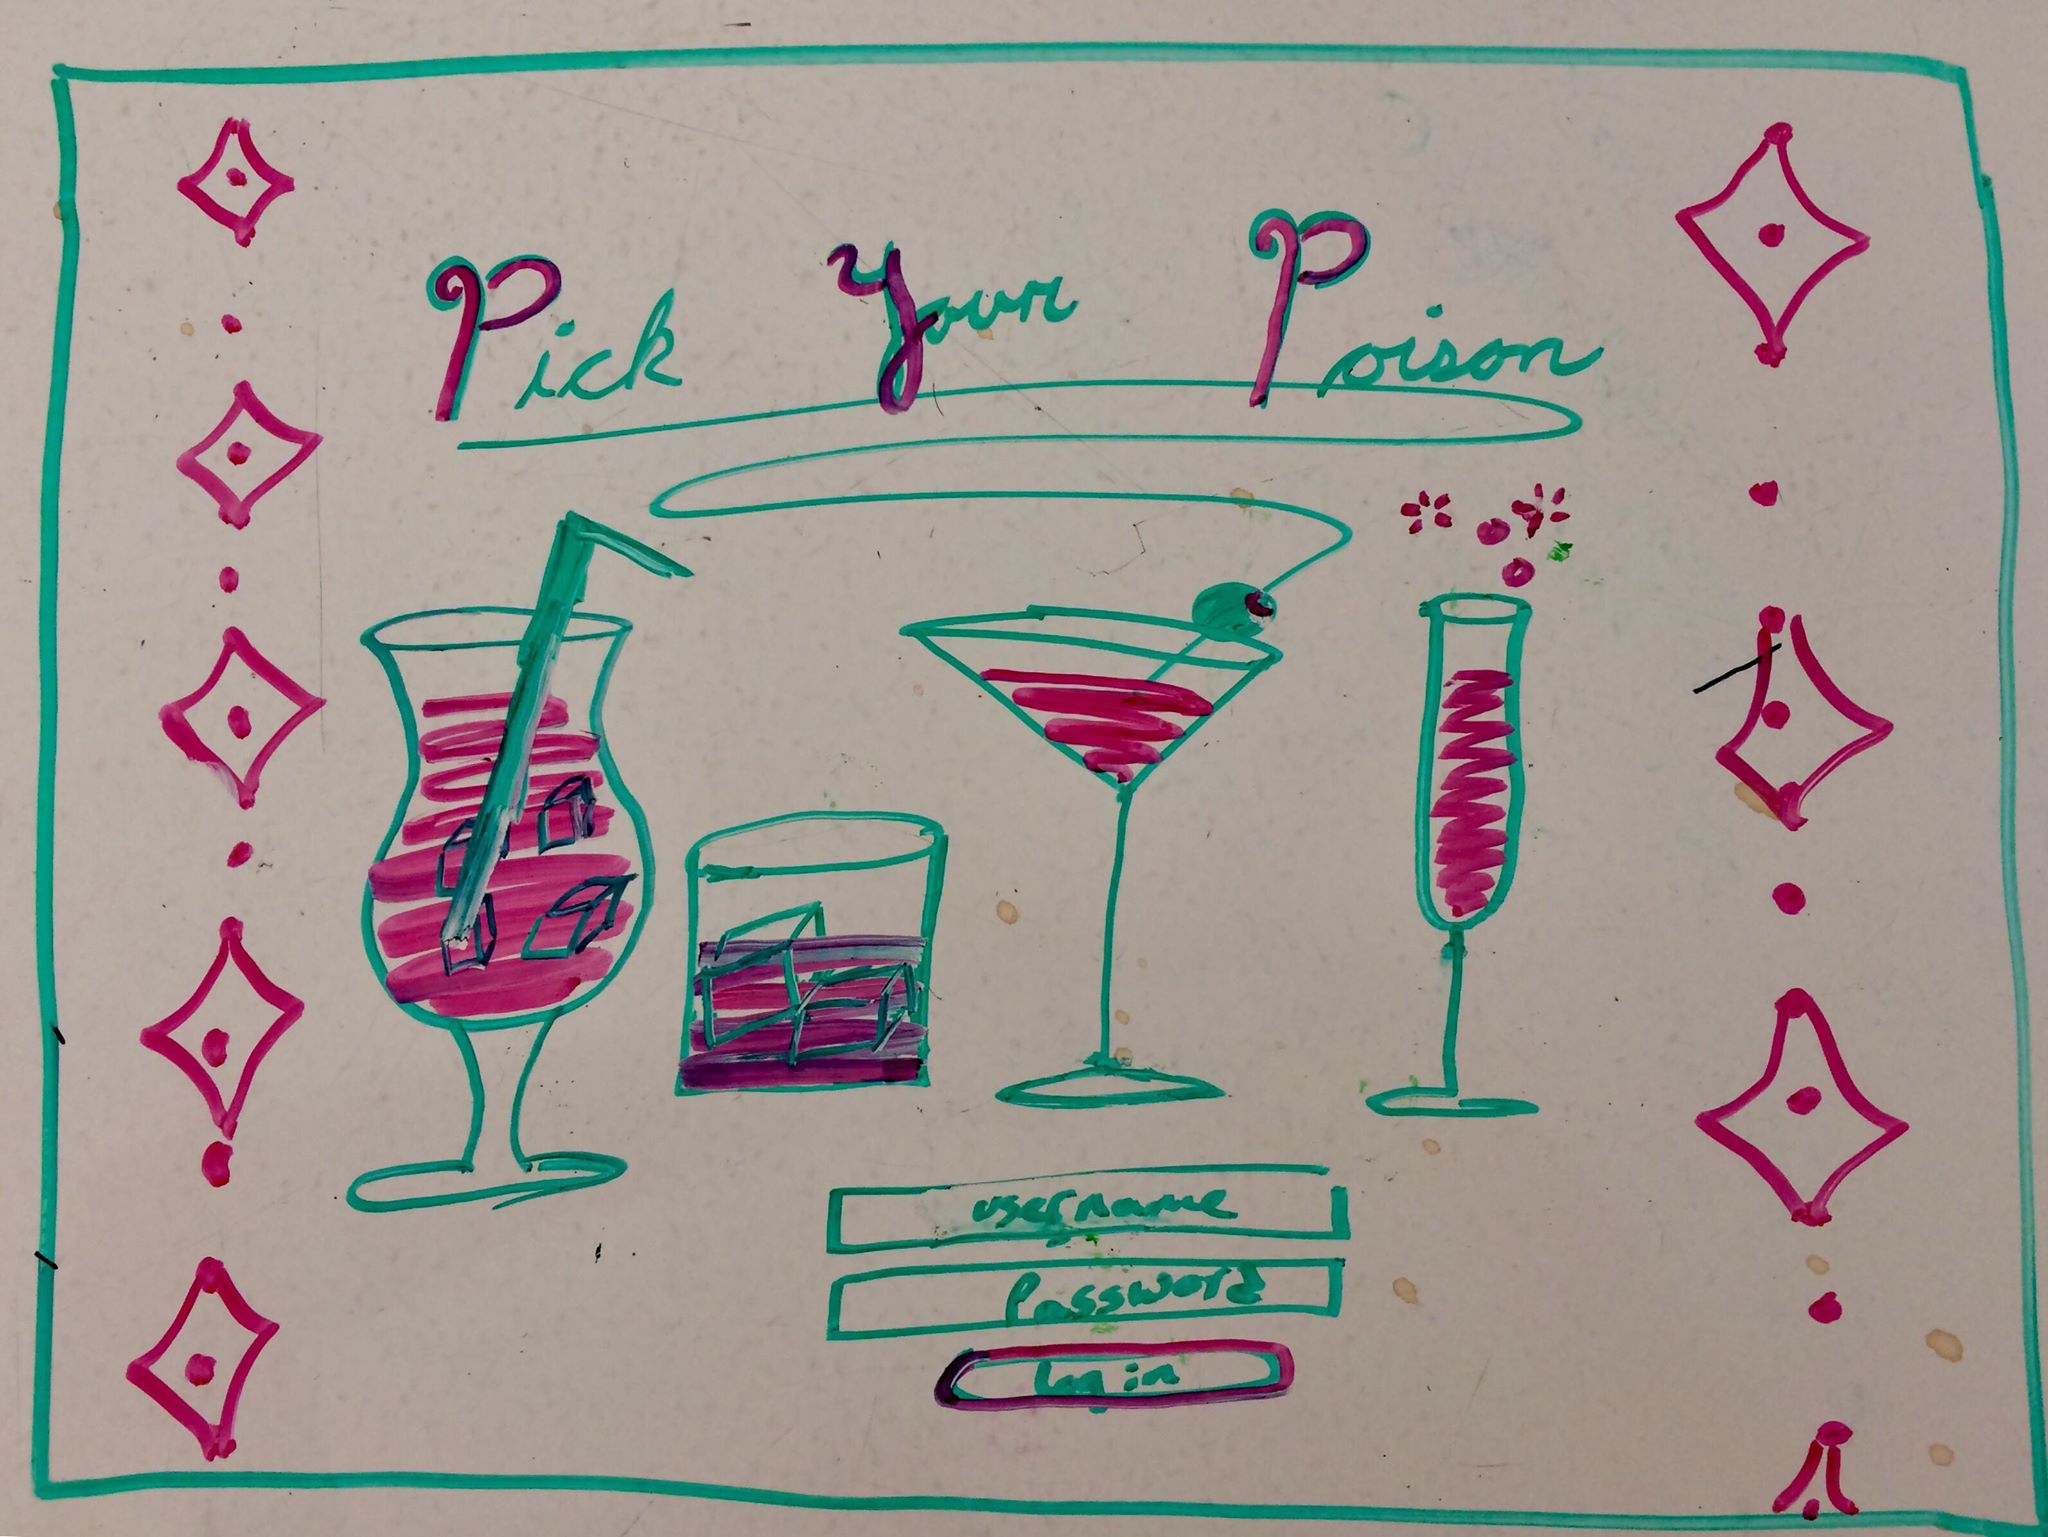 Pick Your Poison
username
Password
log in